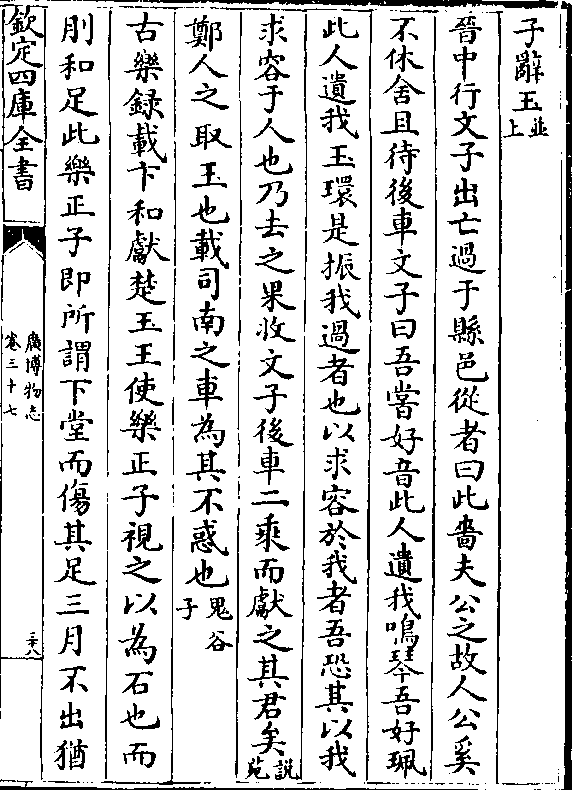 子辭玉並上
晉中行文子出亡過于縣邑從者曰此嗇夫公之故人公奚
不休舍且待後車文子曰吾嘗好音此人遺我鳴琴吾好珮
此人遺我玉環是振我過者也以求容於我者吾恐其以我
求容于人也乃去之果收文子後車二乘而獻之其君矣說苑
鄭人之取玉也載司南之車為其不惑也鬼谷子
古樂録載卞和獻楚玉王使樂正子視之以為石也而
刖和足此樂正子即所謂下堂而傷其足三月不出猶
欽定四庫全書
廣博物志
卷三十七
三八